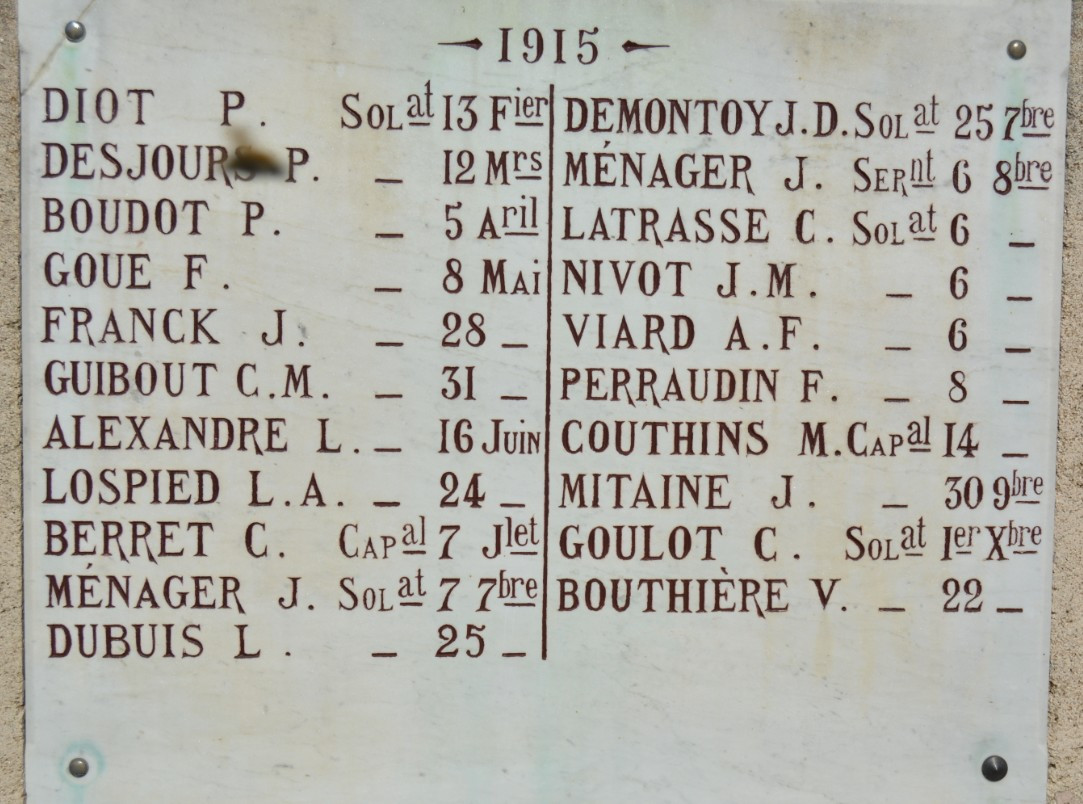 1915
DIOT P. Solat 13 Fier
DESJOURS P. _ 12 Mrs
BOUDOT P. _ 5 Aril
GOUE F. _ 8 Mai
FRANCK J. _ 28 _
GUIBOUT C.M. _ 31 _
ALEXANDRE L. _ 16 Juin
LOSPIED L.A. _ 24 _
BERRET C. Capal 7 Jlet
MÉNAGER J. Solat 7 7bre
DUBUIS L. _ 25 _
DEMONTOY J.D. Solat 25 7bre
MÉNAGER J. Sernt 6 8bre
LATRASSE C. Solat 6 _
NIVOT J.M. _ 6 _
VIARD A.F. _ 6 _
PERRAUDIN F. _ 8 _
COUTHINS M. Capal 14 _
MITAINE J. _ 30 9bre
GOULOT C. Solat Ier Xbre
BOUTHIÈRE V. _ 22 _